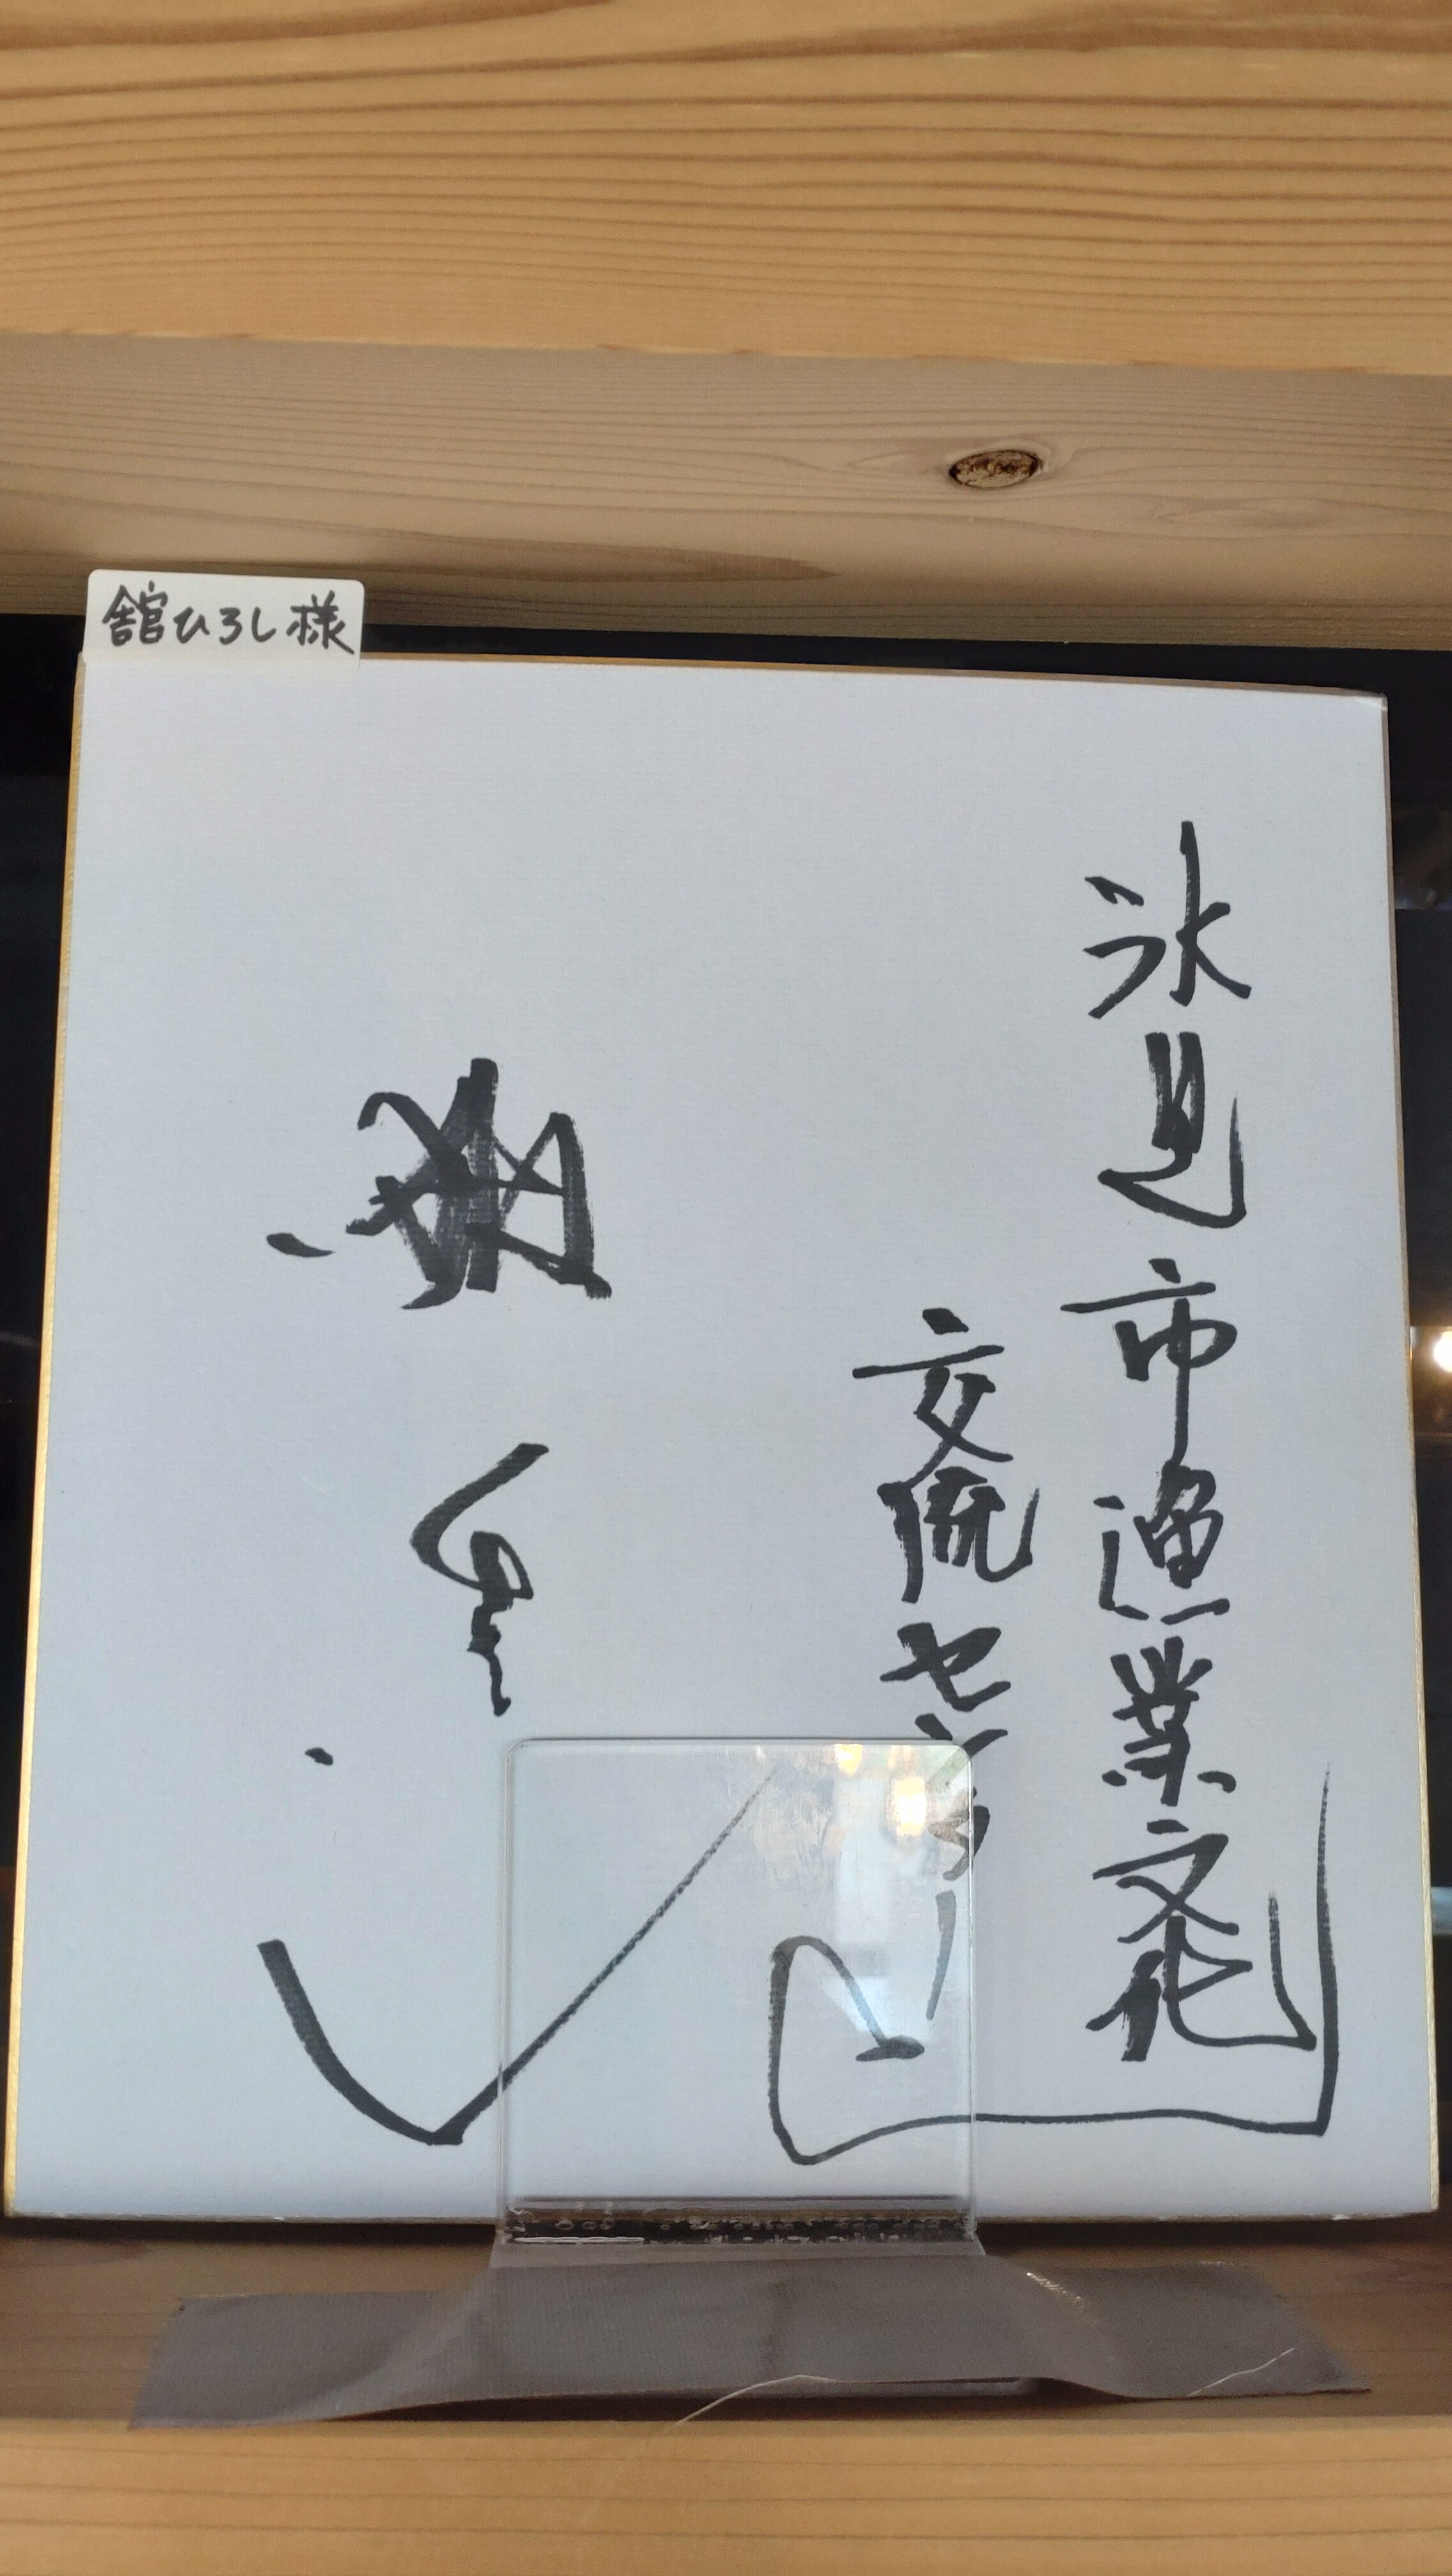 舘ひろし様
氷見市漁業文化
交流センター